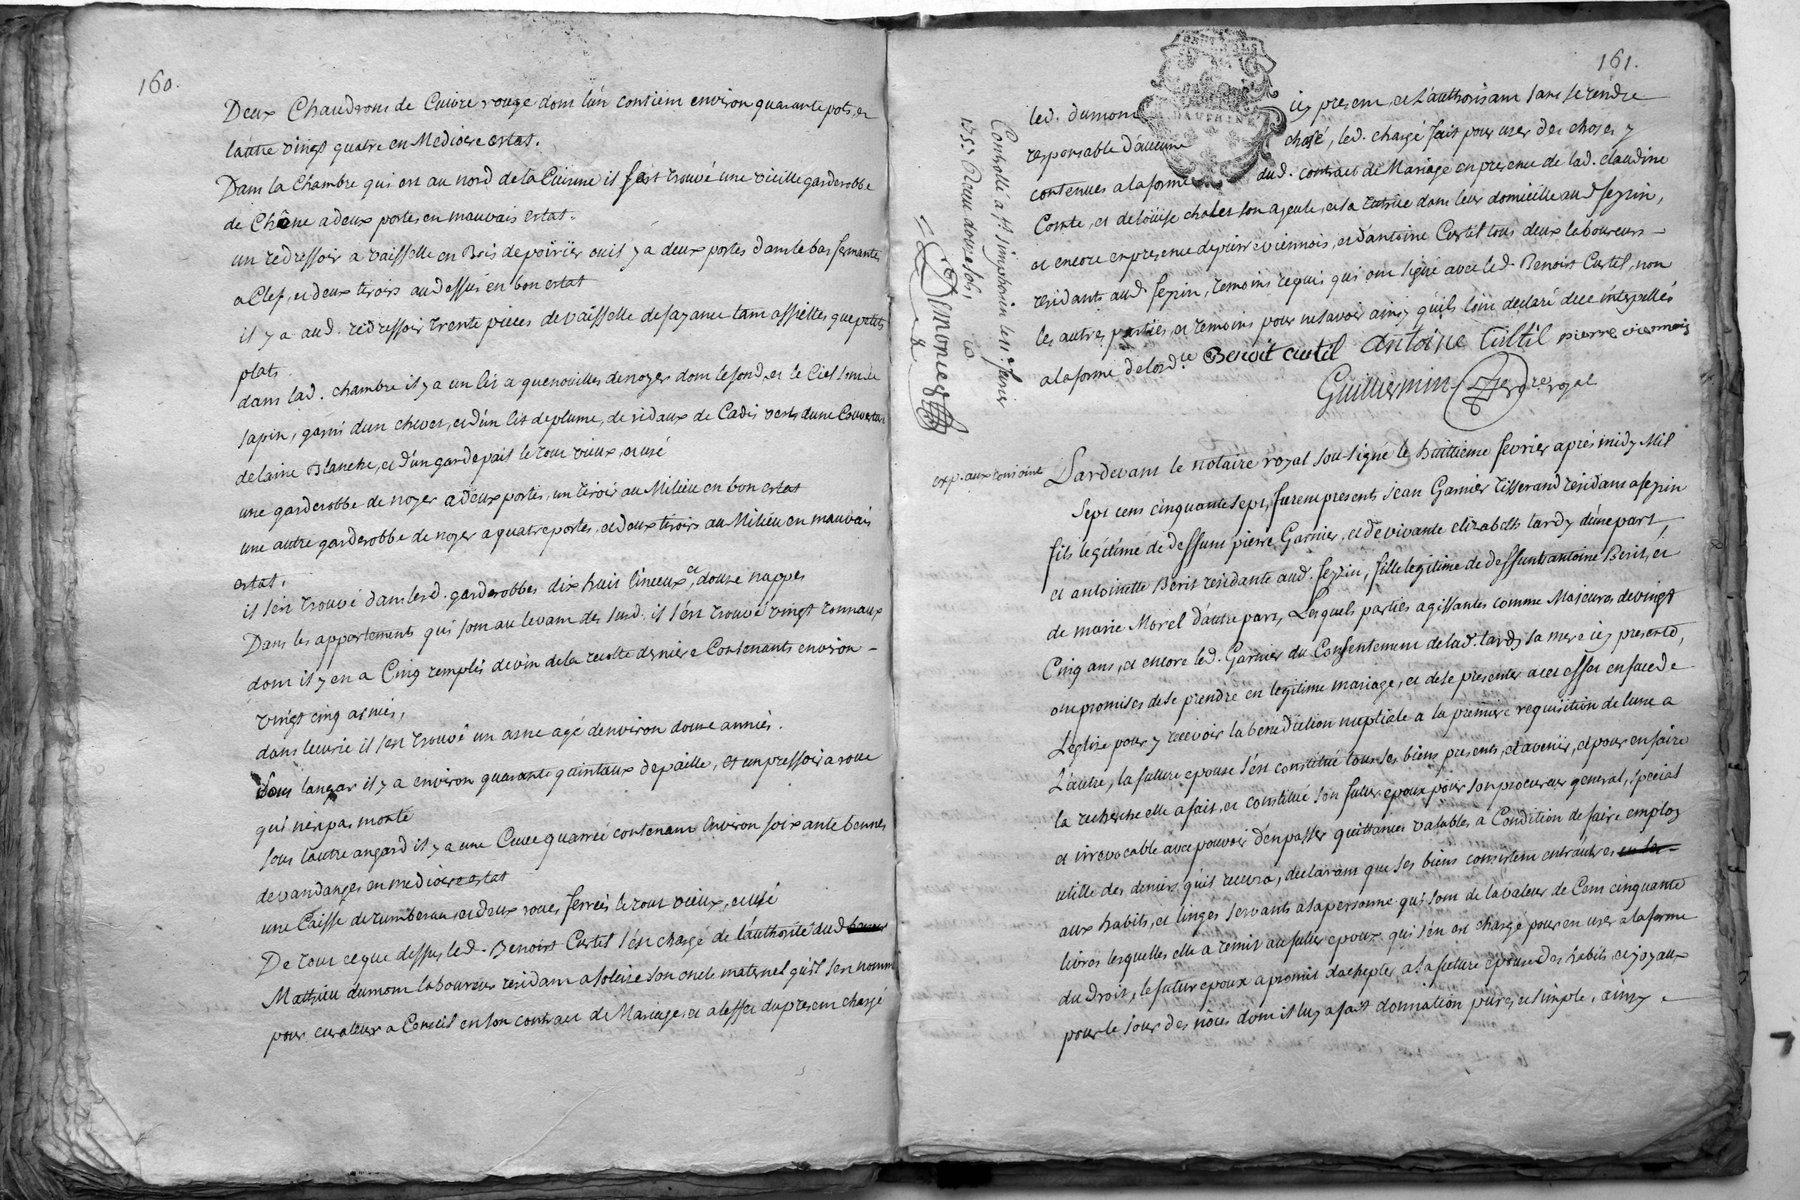 160.
Deux Chaudrons de Cuivre rouge dont l'un contient environ quarante pots, et
l'autre vingt quatre en Mediocre estat.
Dans la Chambre qui est au nord de la Cuisine il s'est trouvé une vieille garderobbe
de Chêne a deux portes en mauvais estat.
un redressoir a vaisselle en Bois de poirier ou il y a deux portes dans le bas fermantes
a Clef, et deux tiroirs au dessus en bon estat
il y a aud. redressoir trente pieces de vaisselle de fayance tant assiettes que petits
plats
dans lad. chambre il y a un lit a quenouilles de noyer dont le fond, et le Ciel sont de
sapin, garni d'un chevet, et d'un lit de plume, de ridaux de Cadis verts d'une Couverture
de laine Blanche, et d'un gardepaît le tout vieux, et usé
une garderobbe de noyer a deux portes, un tiroir au Milieu en bon estat
une autre garderobbe de noyer a quatre portes, et deux tiroirs au Milieu en mauvais
estat.
il s'en trouvé dans lesd. garderobbes dix huit linceux, et douze nappes
Dans les appartements qui sont au levant des susd. il s'en trouvé vingt tonnaux
dont il y en a Cinq remplis de vin de la recolte derniere Contenants environ -
vingt cinq asnées,
dans l'ecurie il s'en trouvé un asne agé d'environ douze années.
Sous l'angar il y a environ quarante quintaux de paille, et un pressoir a roue
qui n'est pas monté
sous l'autre angard il y a une Cuve quarrée contenant Environ soixante bennes
de vandanges en mediocre estat
une Caisse de tumbereau, et deux roues ferrées le tout vieux, et usé
De tout ce que dessus led. Benoist Curtil s'en chargé de l'authorité dud
Mathieu dumont laboureur residant a solaize son oncle maternel qu'il s'en nommé
pour curateur a Conseil en son contract de Mariage, et a l'effet du present chargé
161.
DAUPHINE
led. dumont icy present, et l'authorisant sans se rendre
responsable d'aucune chose, led. chargé fait pour user des choses y
contenues a la forme dud. contract de Mariage en presence de lad. claudine
Comte, et de loüise chalet son ayeule, et sa tutrice dans leur domicille aud. feyzin,
et encore en presence de pierre viennois, et d'antoine Curtil tous deux laboureurs -
residants aud. feyzin, temoins requis qui ont signé avec led. Benoist Curtil, non
les autres parties, et temoins pour ne savoir ainsy qu'ils l'ont declaré de ce interpellés
a la forme de l'ord.ce Benoit curtil antoine Curtil pierre viennois
Guilliermin no.re royal
Controllé a St simphorien le 11e. fevrier
1757 Receu douze sols,
exp. aux
Pardevant le notaire royal sousigné le huittieme fevrier aprés midy Mil
sept cens cinquante sept, furent presents jean Garnier tisserand residant a feyzin
fils legitime de deffunt pierre Garnier, et de vivante elizabeth tardy d'une part,
et antoinette Berit residante aud. feyzin, fille legitime de deffunt antoine Berit, et
de marie Morel d'autre part, Lesquels parties agissantes comme Majeures de vingt
Cinq ans, et encore led. Garnier du Consentement de lad. tardy sa mere icy presente,
ont promises de se prendre en legitime mariage, et de se presenter a cet effet en face de
L'eglise pour y recevoir la benediction nuptiale a la premiere requisition de l'une a
L'autre, la future epouse s'en constitué tous ses biens presents, et avenir, et pour en faire
la recherche elle a fait, et constitué son futur epoux pour son procureur general, special
et irrevocable avec pouvoir d'en passer quittances valables a Condition de faire employ
utille des deniers qu'il recevra, declarant que ses biens consistent entr'autres
aux habits, et linges servants a sa personne qui sont de la valeur de Cent cinquante
livres lesquelles elle a remis au futur epoux qui s'en est chargé pour en user a la forme
du Droit, le futur epoux a promit d'achepter a sa future epouse des habits, et joyaux
pour le jour des nôces dont il luy a fait donnation pure, et simple, ainsy -